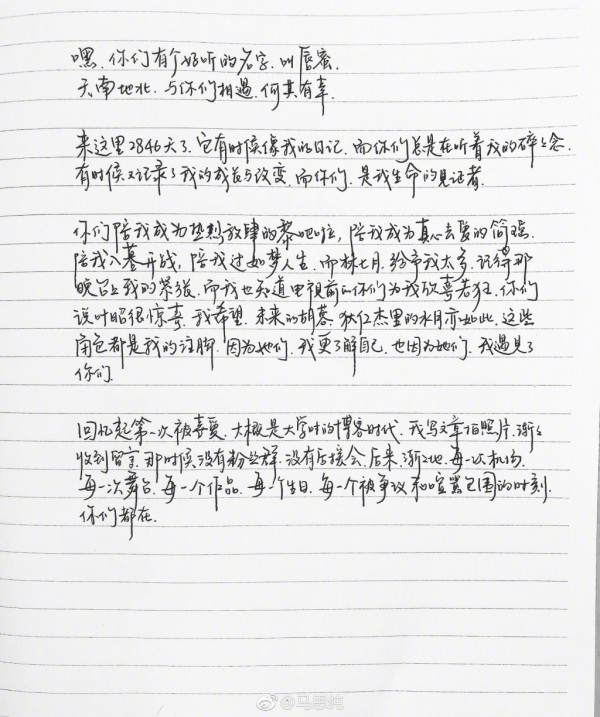 嘿、你们有个好听的名字、叫唇蜜、
天南地北、与你们相遇、何其有幸
来这里2846天了、它有时候像我的日记、而你们总是在听着我的碎碎念、
有时候又记录了我的成长与改变、而你们、是我生命的见证者、
你们陪我成为热烈放肆的黎吧啦，陪我成为真心去爱的简瑶、
陪我入墓开战，陪我过如梦人生、而林七月、给予我太多、记得那
晚台上我的紧张、而我也知道电视前的你们为我欣喜若狂、你们
说叶昭很惊喜、我希望、未来的胡蓉、狄仁杰里的水月亦如此、这些
角色都是我的注脚、因为她们、我更了解自己、也因为她们、我遇见了
你们、
回忆起第一次被喜爱、大概是大学时的博客时代、我写文章拍照片、渐渐
收到留言、那时候、没有粉丝群、没有后援会、后来、渐渐地、每一次机场、
每一次舞台、每一个作品、每个生日、每一个被争议和喧嚣包围的时刻、
你们都在、
@马思纯